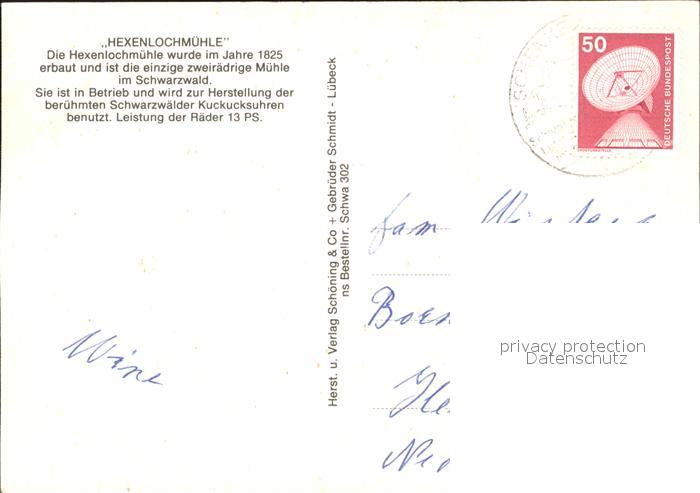 „HEXENLOCHMÜHLE"
Die Hexenlochmühle wurde im Jahre 1825
erbaut und ist die einzige zweirädrige Mühle
im Schwarzwald.
Sie ist in Betrieb und wird zur Herstellung der
berühmten Schwarzwälder Kuckucksuhren
benutzt. Leistung der Räder 13 PS.
Herst. u. Verlag Schöning & Co + Gebrüder Schmidt - Lübeck
ns Bestellnr. Schwa 302
50
DEUTSCHE BUNDESPOST
fam
privacy protection
Datenschutz